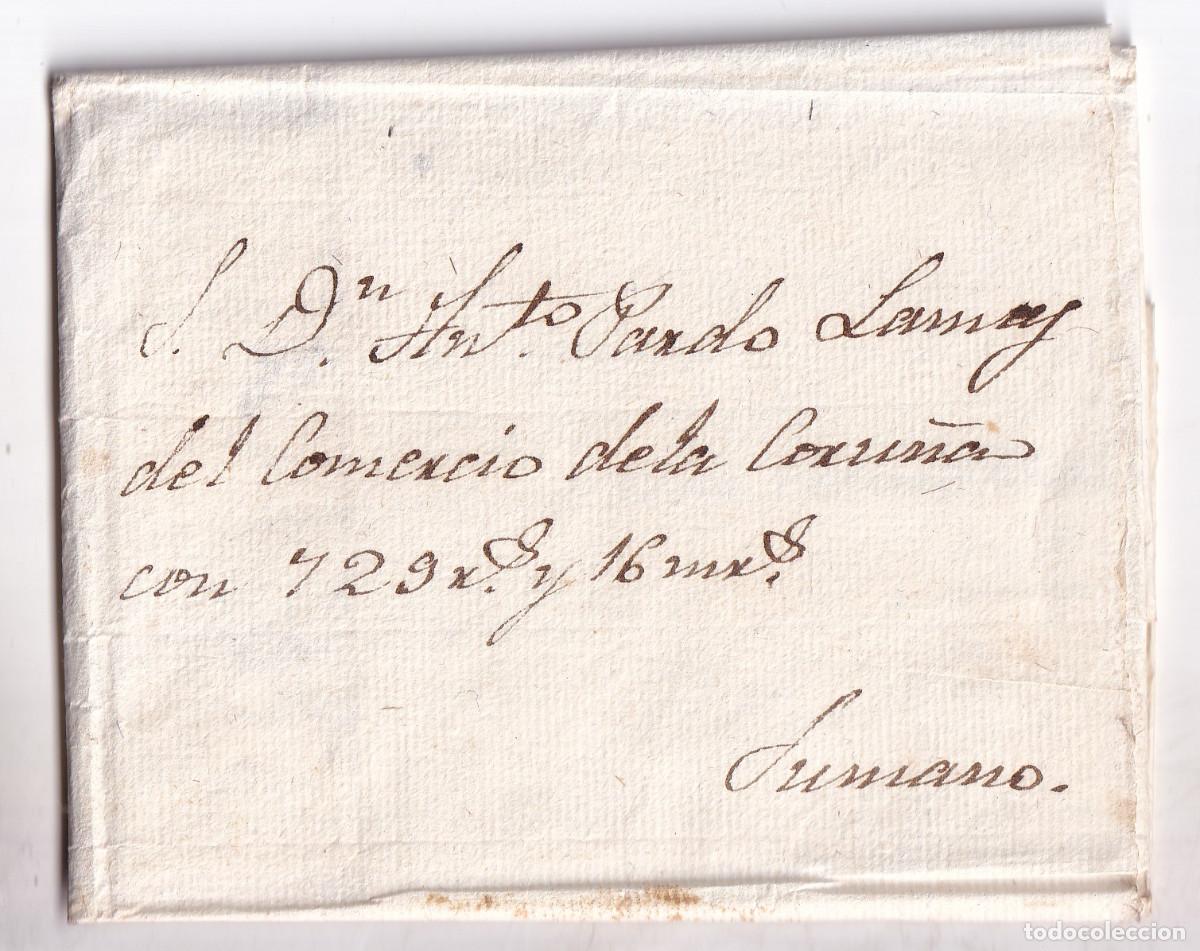 S. Dn. Anto. Pardo Lamas
del Comercio dela Coruña
con 729 rs. y 16 mrs.
Sumano.
todocoleccion